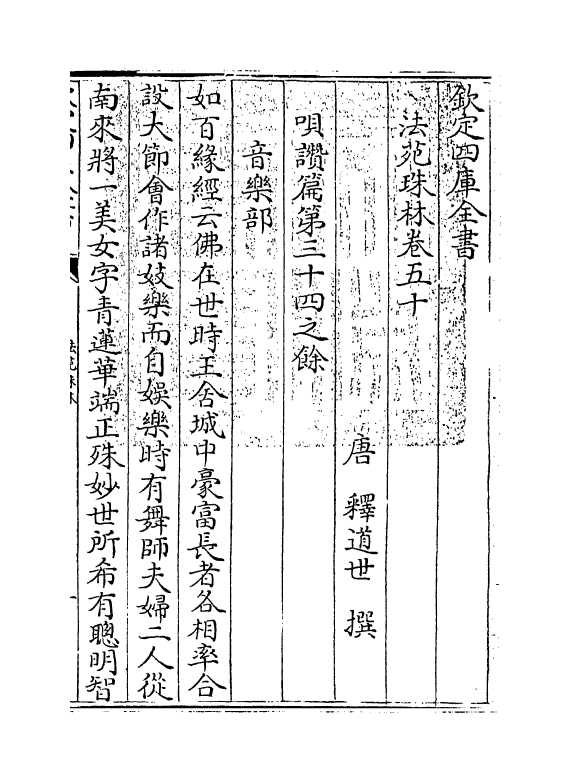 欽定四庫全書
法苑珠林卷五十
唐 釋道世 撰
唄讚篇第三十四之餘
音樂部
如百緣經云佛在世時王舍城中豪富長者各相率合
設大節會作諸妓樂而自娛樂時有舞師夫婦二人從
南來將一美女字青蓮華端正殊妙世所希有聰明智